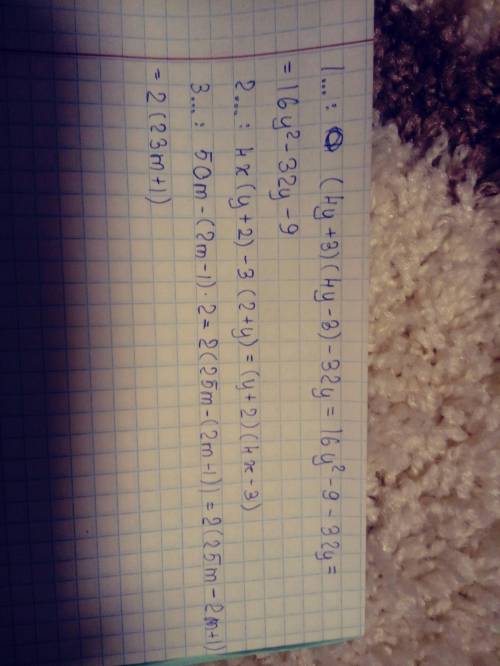 1...: (4y+3)(4y-3)-32y=16y²-9-32y=
=16y²-32y-9
2...: 4x(y+2)-3(2+y)=(y+2)(4x-3)
3...: 50m-(2m-1)·2=2(25m-(2m-1))=2(25m-2m+1)
=2(23m+1)